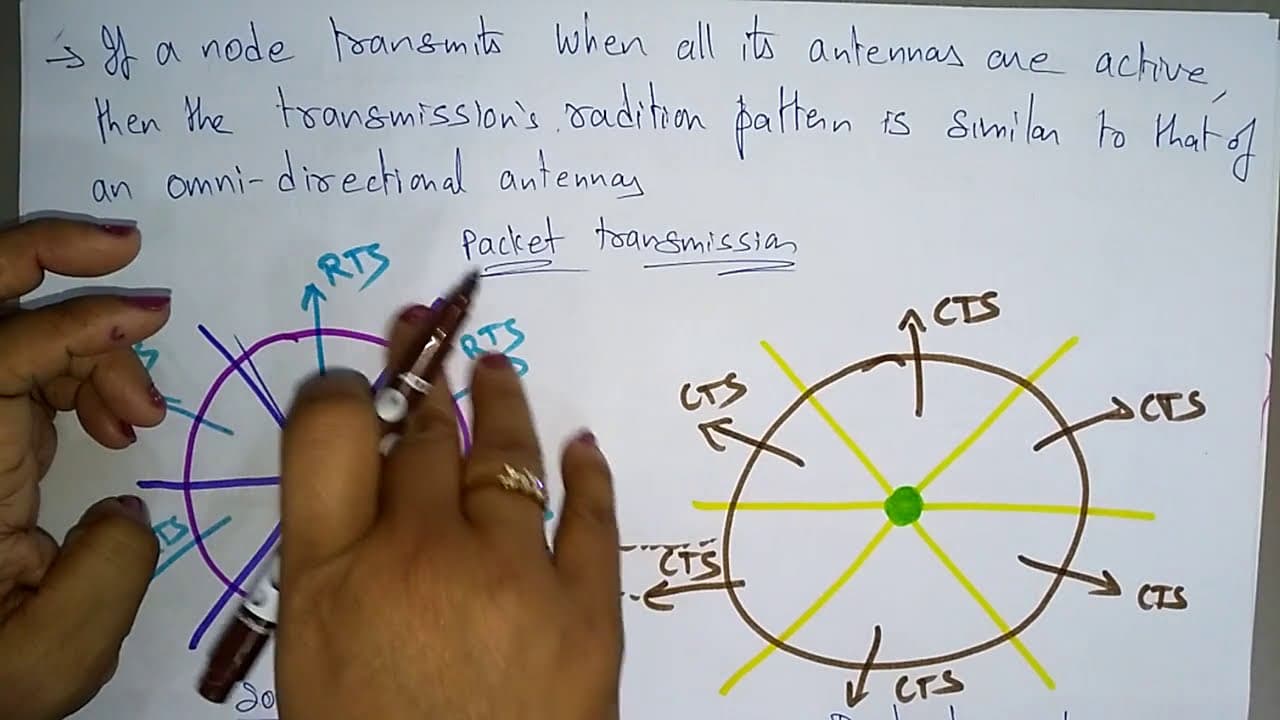 → If a node transmits when all its antennas are active,
then the transmission's radition pattern is similar to that of
an omni-directional antennas
Packet transmission
RTS
RTS
CTS
CTS
CTS
CTS
CTS
CTS